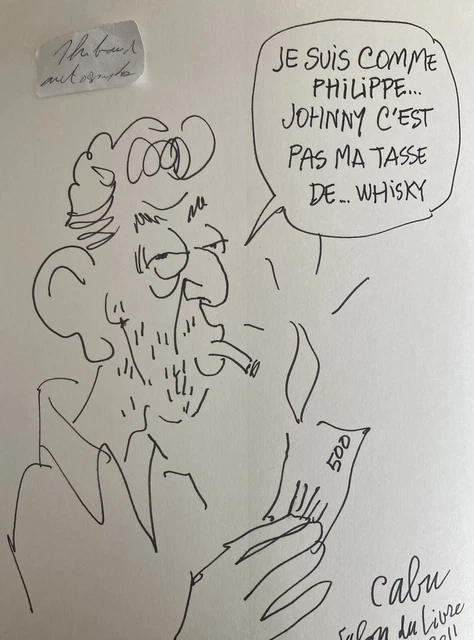 Thibaud
autographe
JE SUIS COMME
PHILIPPE...
JOHNNY C'EST
PAS MA TASSE
DE... WHISKY
500
cabu
Salon du Livre